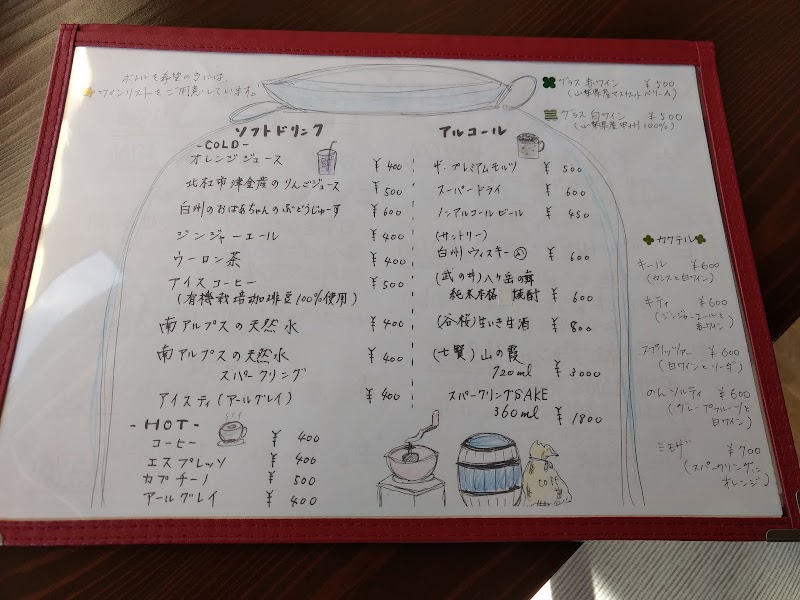 ボトルを希望の方には、
ワインリストをご用意しています。
ソフトドリンク
-COLD-
オレンジジュース ¥400
北杜市津金産のりんごジュース ¥500
白州のおばあちゃんのぶどうじゅーす ¥600
ジンジャーエール ¥400
ウーロン茶 ¥400
アイスコーヒー ¥500
(有機栽培珈琲豆100%使用)
南アルプスの天然水 ¥400
南アルプスの天然水 ¥400
スパークリング
アイスティ(アールグレイ) ¥400
-HOT-
コーヒー ¥400
エスプレッソ ¥400
カプチーノ ¥500
アールグレイ ¥400
アルコール
ザ・プレミアムモルツ ¥500
スーパードライ ¥600
ノンアルコールビール ¥450
(サントリー)
白州ウィスキー ¥600
(武の井)八ヶ岳の舞
純米本格 焼酎 ¥600
(谷桜)生いき生酒 ¥800
(七賢)山の霞
720ml ¥3000
スパークリングSAKE
360ml ¥1800
グラス 赤ワイン ¥500
(山梨県産マスカットベリーA)
グラス 白ワイン ¥500
(山梨県産甲州100%)
カクテル
キール ¥600
(カシスと白ワイン)
キティ ¥600
(ジンジャーエールと
赤ワイン)
スプリッツァー ¥600
(白ワインとソーダ)
のんソルティ ¥600
(グレープフルーツと
白ワイン)
ミモザ ¥700
(スパークリングに
オレンジ)